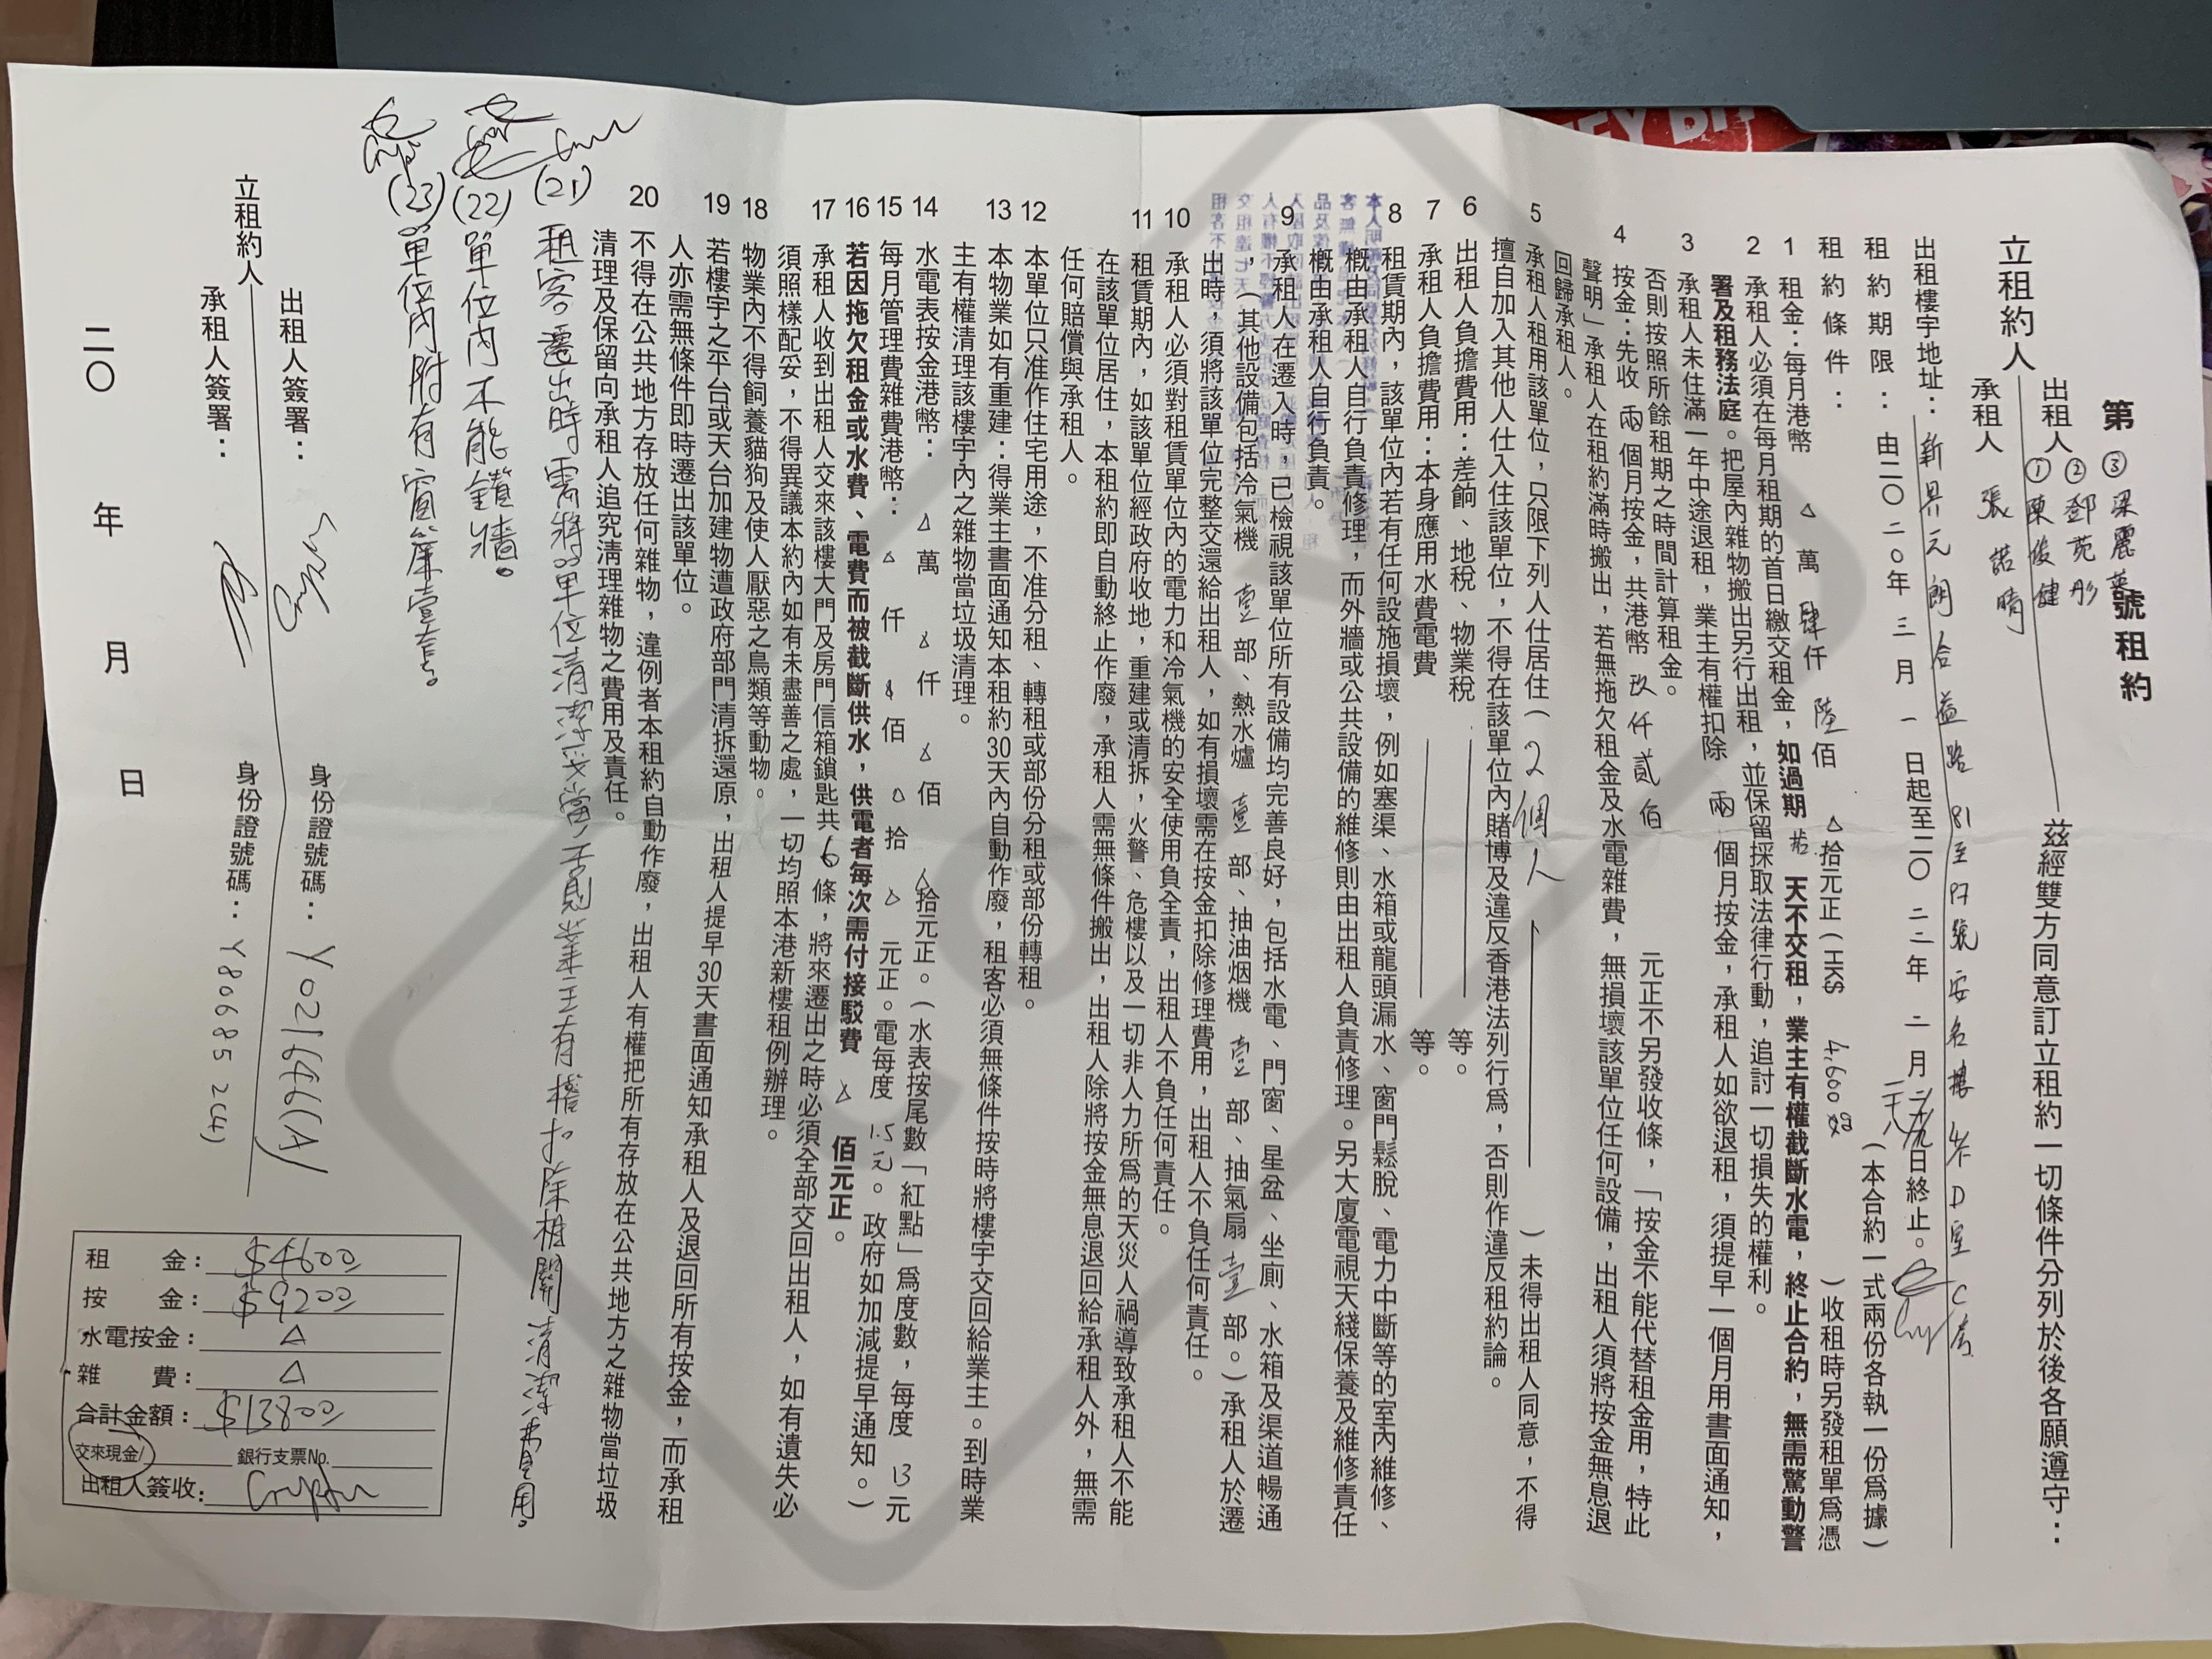 第 號租約
③梁麗
②鄧苑彤
①陳俊健
立租約人
出租人
承租人 張 諾 晴
茲經雙方同意訂立租約一切條件分列於後各願遵守：
出租樓宇地址：新界元朗合益路81至 號安名樓 D室C房
租約期限：由二〇二〇年 三 月 一 日起至二〇 二二年 二 月 二十八日終止。
租約條件：
（本合約一式兩份各執一份爲據）
1 租金：每月港幣 △ 萬 肆 仟 陸 佰 △ 拾元正（HK$ 4,600 ）收租時另發租單爲憑
2 承租人必須在每月租期的首日繳交租金，如過期 天不交租，業主有權截斷水電，終止合約，無需驚動警
署及租務法庭。把屋內雜物搬出另行出租，並保留採取法律行動，追討一切損失的權利。
3 承租人未住滿一年中途退租，業主有權扣除 兩 個月按金，承租人如欲退租，須提早一個月用書面通知，
否則按照所餘租期之時間計算租金。
4 按金：先收 兩 個月按金，共港幣 玖 仟 貳 佰 元正不另發收條，「按金不能代替租金用，特此
聲明」承租人在租約滿時搬出，若無拖欠租金及水電雜費，無損壞該單位任何設備，出租人須將按金無息退
回歸承租人。
5 承租人租用該單位，只限下列人仕居住（ 2個人 ）未得出租人同意，不得
擅自加入其他人仕入住該單位，不得在該單位內賭博及違反香港法列行爲，否則作違反租約論。
6 出租人負擔費用：差餉、地稅、物業稅 等。
7 承租人負擔費用：本身應用水費電費 等。
8 租賃期內，該單位內若有任何設施損壞，例如塞渠、水箱或龍頭漏水、窗門鬆脫、電力中斷等的室內維修、
概由承租人自行負責修理，而外牆或公共設備的維修則由出租人負責修理。另大廈電視天綫保養及維修責任
概由承租人自行負責。
9 承租人在遷入時，已檢視該單位所有設備均完善良好，包括水電、門窗、星盆、坐廁、水箱及渠道暢通
，（其他設備包括冷氣機 壹 部、熱水爐 壹 部、抽油烟機 壹 部、抽氣扇 壹 部。）承租人於遷
出時，須將該單位完整交還給出租人，如有損壞需在按金扣除修理費用，出租人不負任何責任。
10 承租人必須對租賃單位內的電力和冷氣機的安全使用負全責，出租人不負任何責任。
11 租賃期內，如該單位經政府收地，重建或清拆，火警、危樓以及一切非人力所爲的天災人禍導致承租人不能
在該單位居住，本租約即自動終止作廢，承租人需無條件搬出，出租人除將按金無息退回給承租人外，無需
任何賠償與承租人。
12 本單位只准作住宅用途，不准分租、轉租或部份分租或部份轉租。
13 本物業如有重建：得業主書面通知本租約30天內自動作廢，租客必須無條件按時將樓宇交回給業主。到時業
主有權清理該樓宇內之雜物當垃圾清理。
14 水電表按金港幣： △ 萬 △ 仟 △ 佰 △ 拾元正。（水表按尾數「紅點」爲度數，每度 13 元
15 每月管理費雜費港幣： △ 仟 △ 佰 △ 拾 △ 元正。電每度 1.5元 。政府如加減提早通知。）
16 若因拖欠租金或水費、電費而被截斷供水，供電者每次需付接駁費 △ 佰元正。
17 承租人收到出租人交來該樓大門及房門信箱鎖匙共 6 條，將來遷出之時必須全部交回出租人，如有遺失必
須照樣配妥，不得異議本約內如有未盡善之處，一切均照本港新樓租例辦理。
18 物業內不得飼養貓狗及使人厭惡之鳥類等動物。
19 若樓宇之平台或天台加建物遭政府部門清拆還原，出租人提早30天書面通知承租人及退回所有按金，而承租
人亦需無條件即時遷出該單位。
20 不得在公共地方存放任何雜物，違例者本租約自動作廢，出租人有權把所有存放在公共地方之雜物當垃圾
清理及保留向承租人追究清理雜物之費用及責任。
(21) 租客遷出時需將單位清潔妥當，否則業主有權扣除相關清潔費用。
(22) 單位內不能鑽牆。
(23) 單位內附有窗簾壹套。
立租約人
出租人簽署： 身份證號碼：Y021646(A)
承租人簽署： 身份證號碼：Y806852(4)
二〇 年 月 日
租 金： $4600
按 金： $9200
水電按金： △
雜 費： △
合計金額： $13800
交來現金/ 銀行支票No.
出租人簽收：
COPY